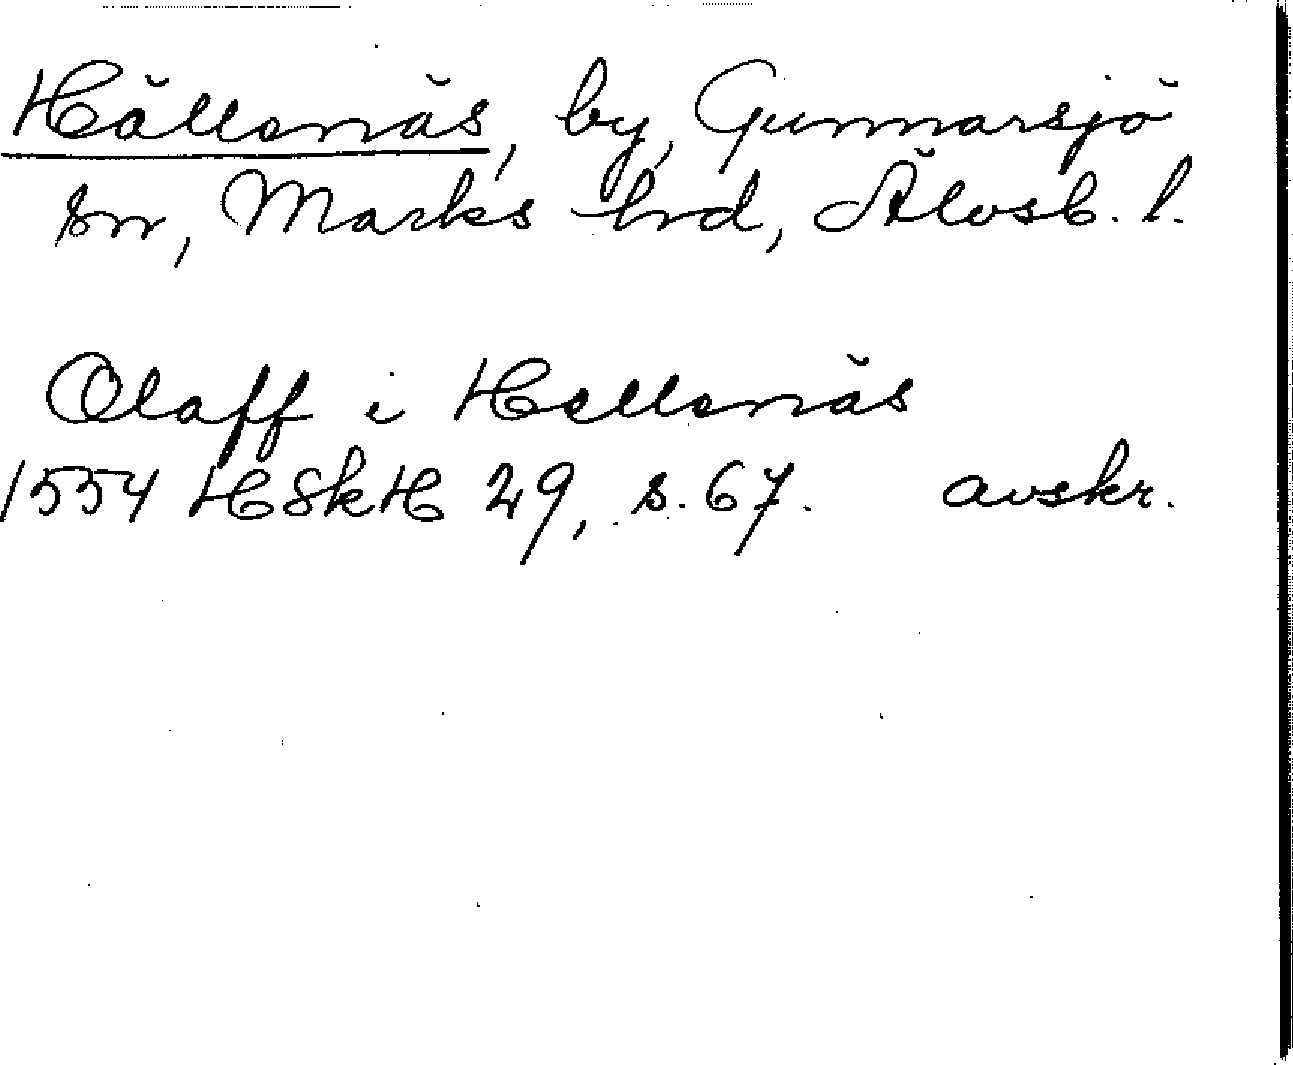 Hällenäs, by, Gunnarsjö
sn, Marks hrd, Älvsb. l.
Olaff i Hellenäs
1554 HSkH 29, s. 67. avskr.